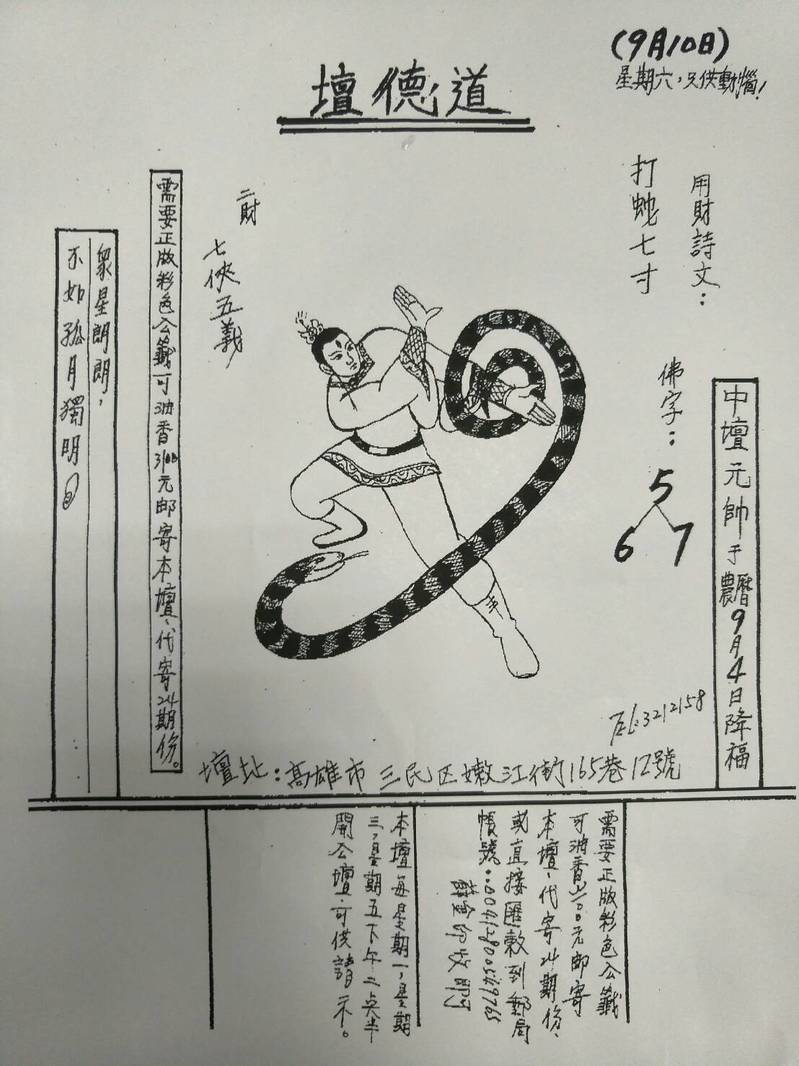 (9月10日)
星期六，只供動惱！
道德壇
用財詩文：
打蛇七寸
佛字：
5
6 7
中壇元帥于農曆9月4日降福
二財
七俠五義
需要正版彩色公籤可油香3100元邮寄本壇、代寄24期份。
眾星朗朗，
不如孤月獨明
TEL:3212158
壇址：高雄市三民区嫩江街165巷12號
需要正版彩色公籤
可油香3100元邮寄
本壇、代寄24期份、
或直接匯款到郵局
帳號：00412800549765
本壇每星期一，星期
三，星期五下午二点半
開公壇、可供請示。